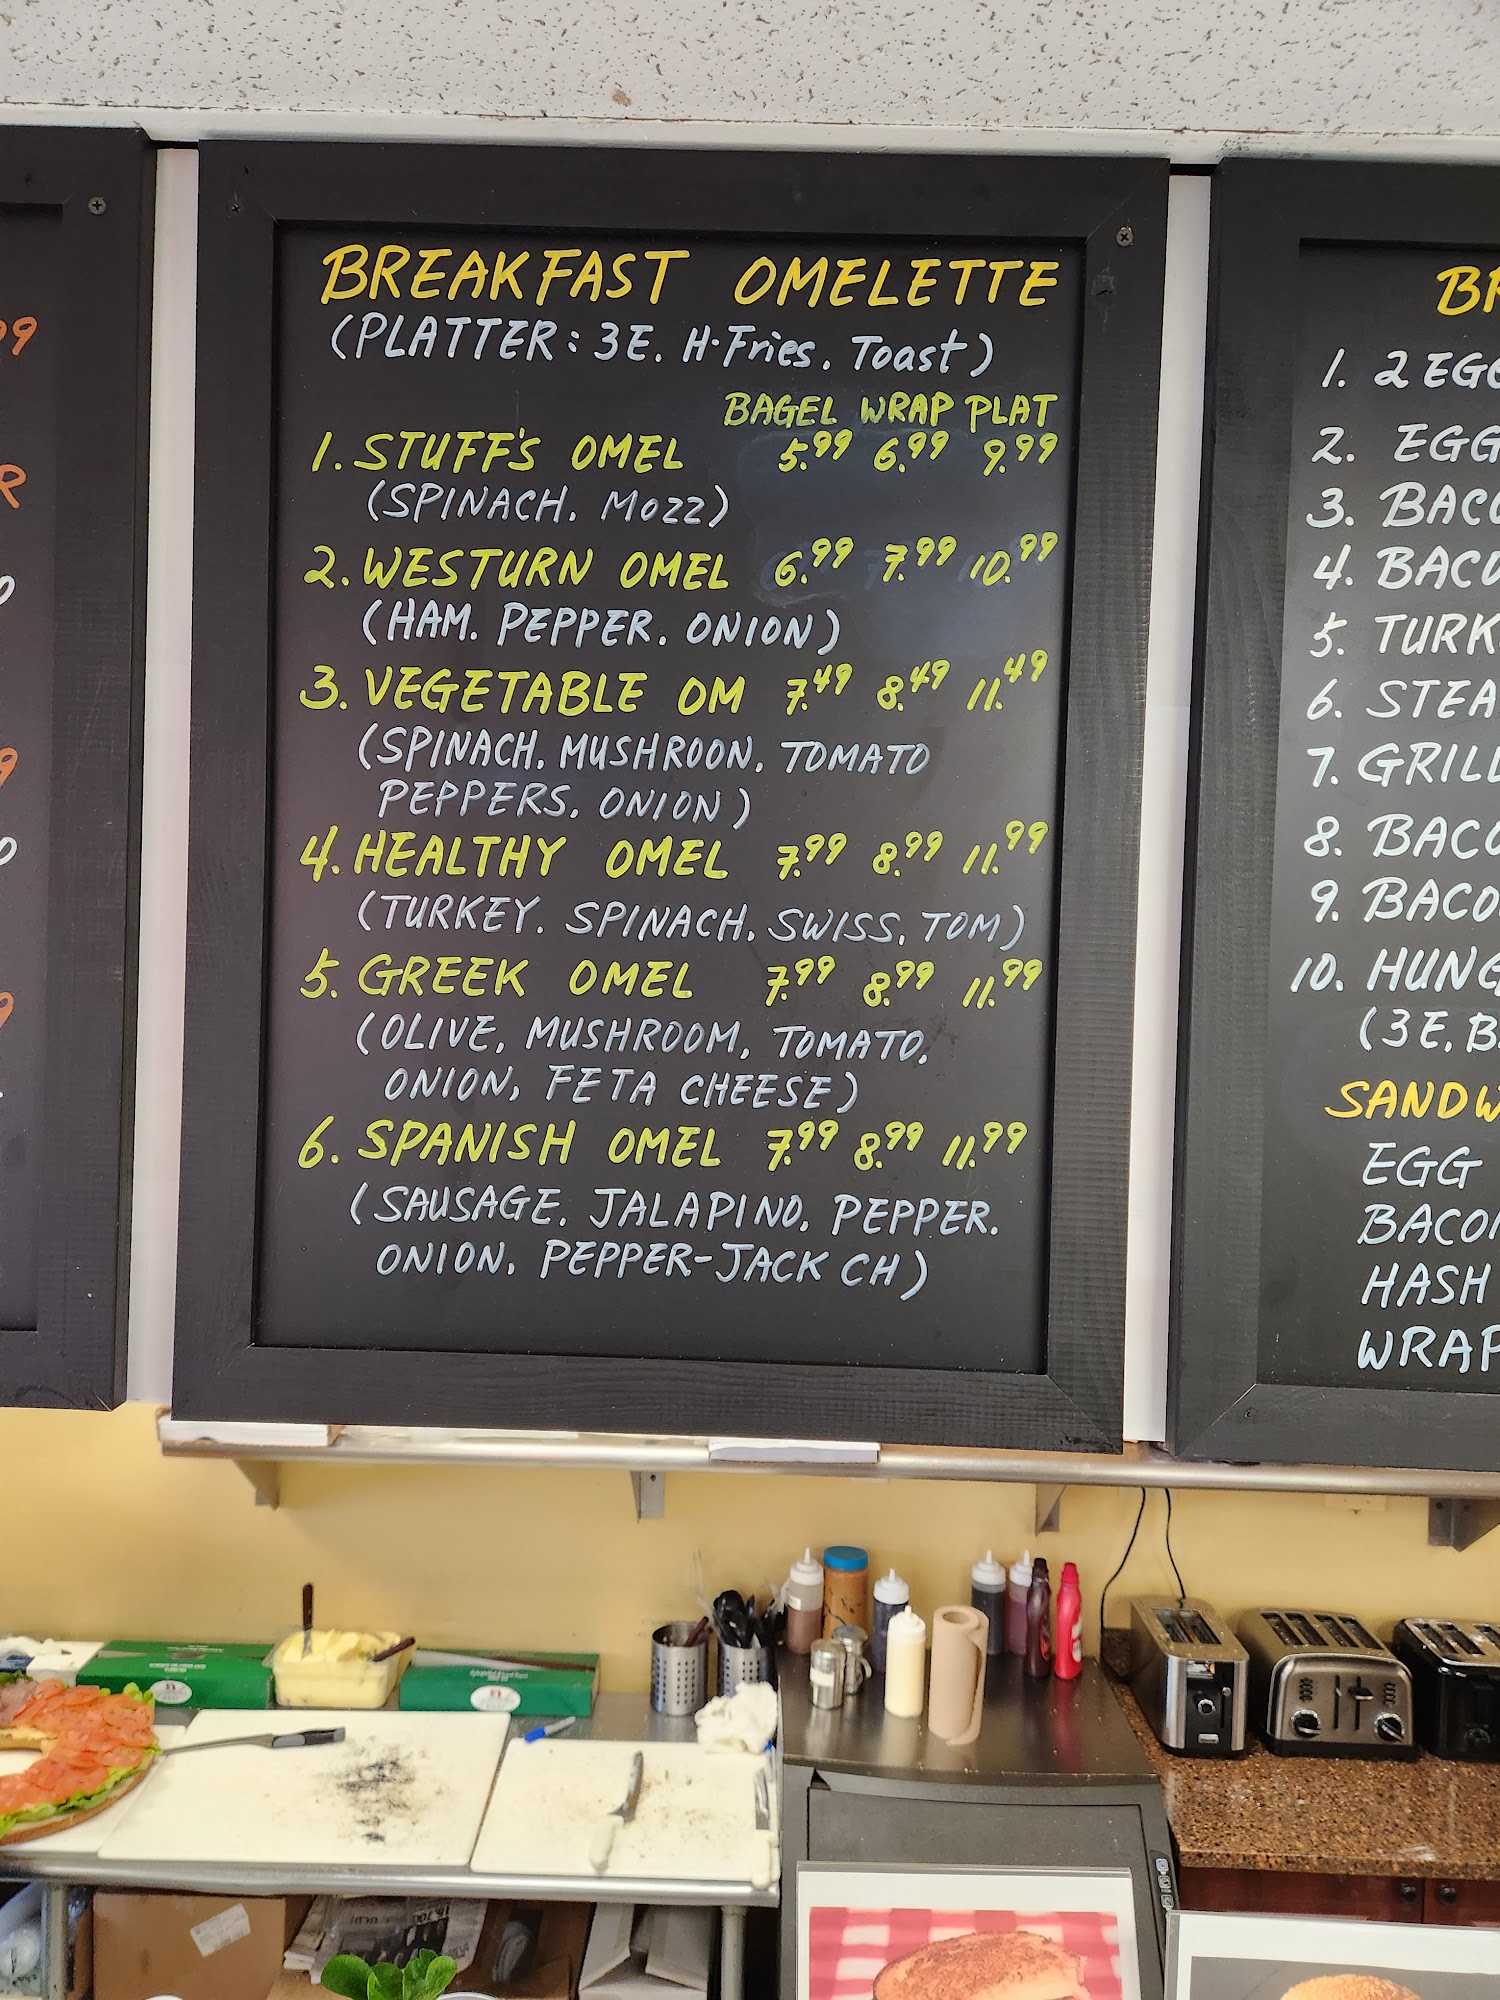 BREAKFAST OMELETTE
(PLATTER: 3E. H·Fries. Toast)
BAGEL WRAP PLAT
1. STUFF'S OMEL 5.99 6.99 9.99
(SPINACH. MOZZ)
2. WESTURN OMEL 6.99 7.99 10.99
(HAM. PEPPER. ONION)
3. VEGETABLE OM 7.49 8.49 11.49
(SPINACH. MUSHROON. TOMATO
PEPPERS. ONION)
4. HEALTHY OMEL 7.99 8.99 11.99
(TURKEY. SPINACH. SWISS. TOM)
5. GREEK OMEL 7.99 8.99 11.99
(OLIVE. MUSHROOM, TOMATO.
ONION, FETA CHEESE)
6. SPANISH OMEL 7.99 8.99 11.99
(SAUSAGE. JALAPINO. PEPPER.
ONION. PEPPER-JACK CH)
1. 2 EGG
2. EGG
3. BACO
4. BACO
5. TURK
6. STEA
7. GRILL
8. BACO
9. BACO
10. HUNG
(3E. B
SANDW
EGG
BACON
HASH
WRAP